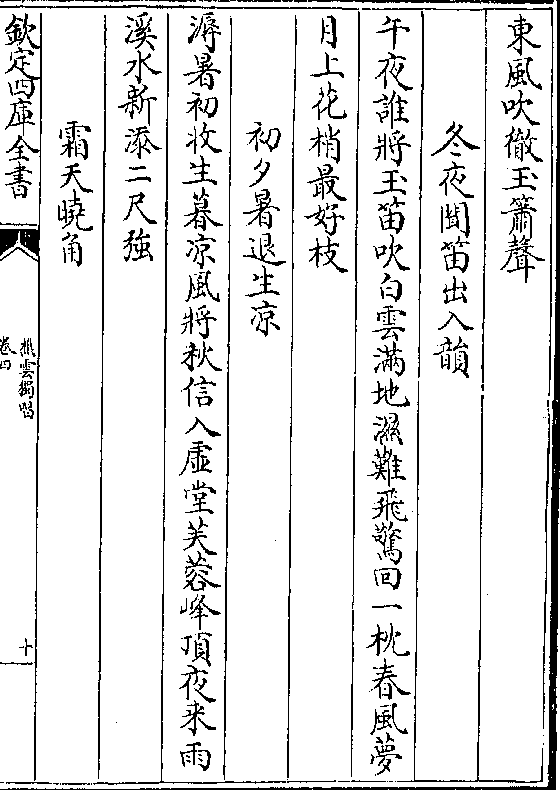 東風吹徹玉簫聲
冬夜聞笛出入韻
午夜誰將玉笛吹白雲滿地濕難飛驚回一枕春風夢
月上花梢最好枝
初夕暑退生凉
溽暑初收生暮凉風將秋信入虛堂芙蓉峰頂夜来雨
溪水新添二尺強
霜天曉角
欽定四庫全書
樵雲獨唱
卷四
十